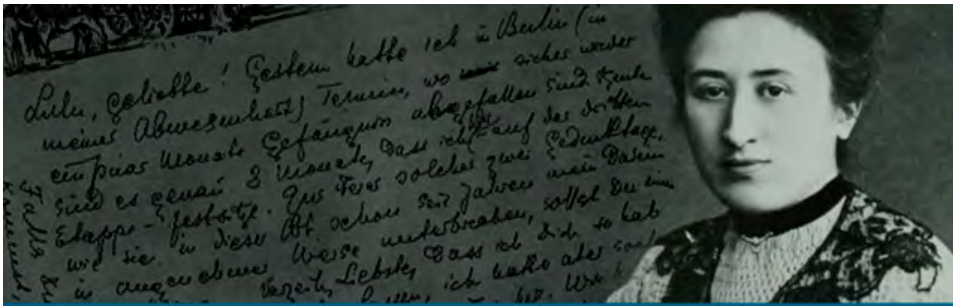 Lulu, geliebte! Gestern hatte ich in Berlin (in
meiner Abwesenheit) Termin, wo sicher wieder
ein paar Monate Gefängnis abgefallen sind. Heute
sind es genau 3 Monate, dass ich auf der dritten
Etappe – festsitze. Zur Feier solcher zwei Gedenktage,
wie sie in dieser Art schon seit Jahren mein Dasein
in angenehmer Weise unterbrechen, sollst Du
Verzeih, Liebste, dass ich Dich so
ich hatte aber
Falls